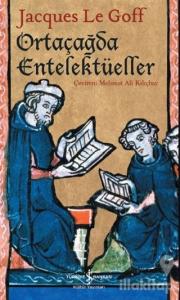 Jacques Le Goff
Ortaçağda
Entelektüeller
Çeviren: Mehmet Ali Kılıçbay
TÜRKİYE İŞ BANKASI
Kültür Yayınları
ilknokta